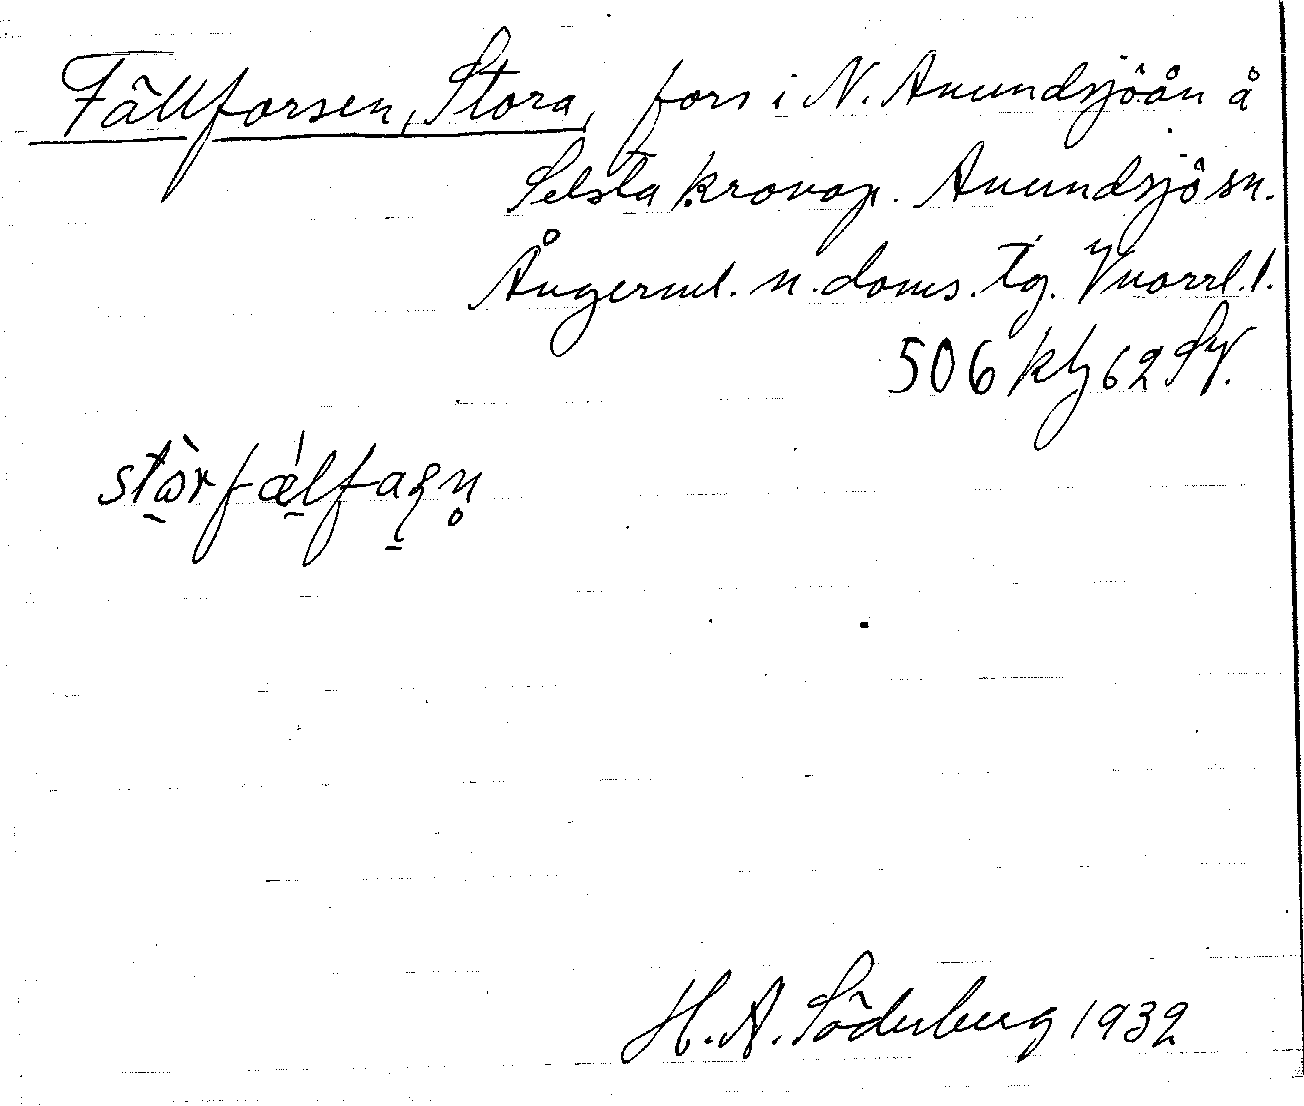 Fällforsen, Stora, fors i N. Anundsjöån å
Selsta kronop. Anundsjö sn.
Ångerml. n. doms. tg. Vnorrl. l.
506 kbz 62 SV.
stòrfǽlfaʂn̥
H. A. Söderberg 1932